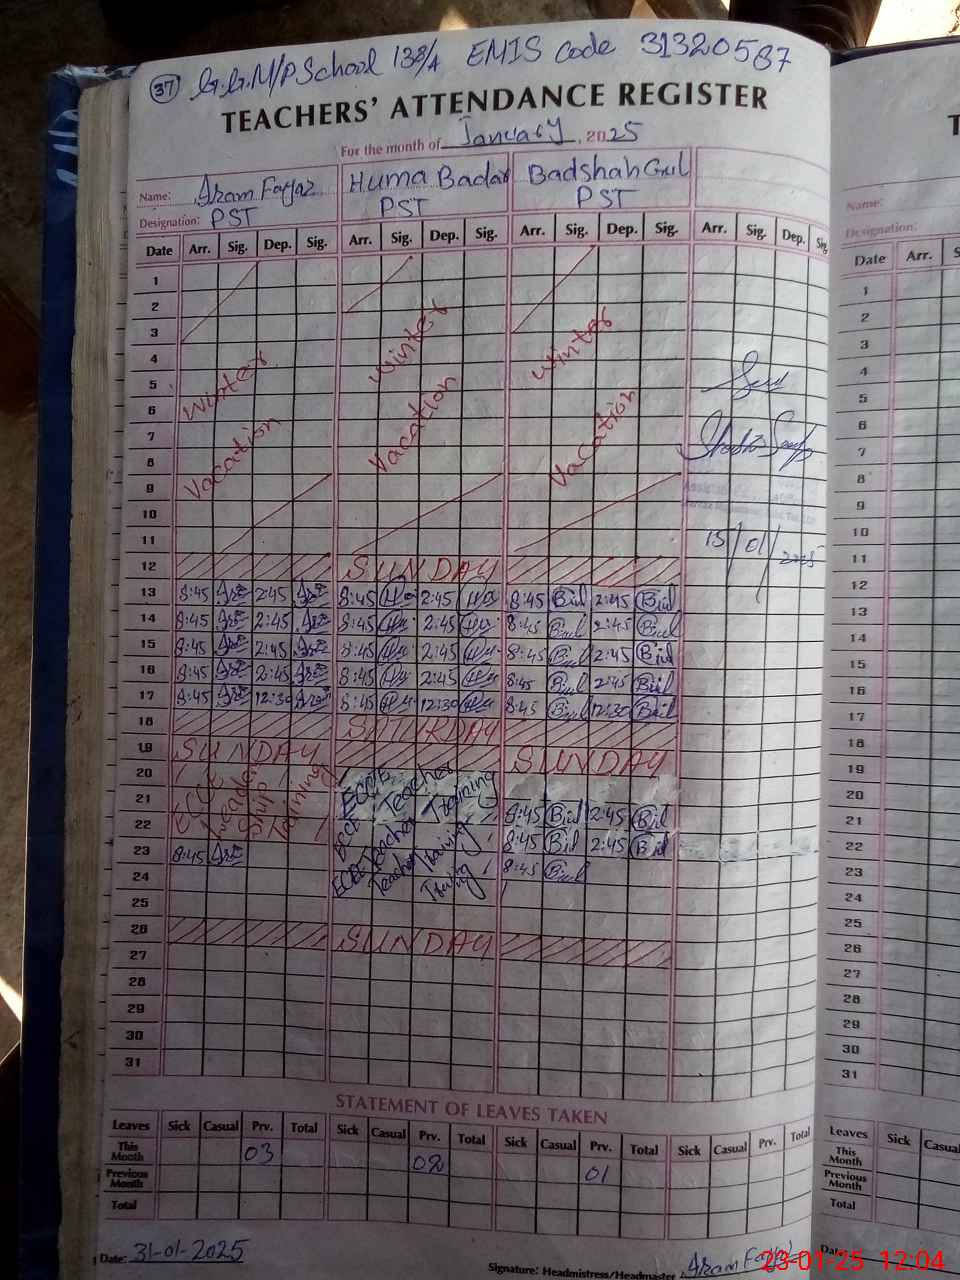 37 G.G.M/P School 138/A EMIS Code 31320587
TEACHERS' ATTENDANCE REGISTER
For the month of January, 2025
Name: Huma Badar Badshah Gul
Designation: PST PST PST
Date Arr. Sig. Dep. Sig. Arr. Sig. Dep. Sig. Arr. Sig. Dep. Sig. Arr. Sig. Dep. Sig.
1
2
3
4
5
6
7
8
9
10
11
Winter Vacation
Winter Vacation
Winter Vacation
15/01/2025
12 SUNDAY
13 8:45 2:45 8:45 2:45 8:45 2:45
14 8:45 2:45 8:45 2:45 8:45 2:45
15 8:45 2:45 8:45 2:45 8:45 2:45
16 8:45 2:45 8:45 2:45 8:45 2:45
17 8:45 12:30 8:45 12:30 8:45 12:30
18 SATURDAY
19 SUNDAY SUNDAY
20
21 8:45 2:45
22 8:45 2:45
23 8:45 8:45
ECCE Leader Ship Training
ECCE Teacher Training
ECCE Teacher Training
ECCE Teacher Training
24
25
26 SUNDAY
27
28
29
30
31
STATEMENT OF LEAVES TAKEN
Leaves Sick Casual Prv. Total Sick Casual Prv. Total Sick Casual Prv. Total Sick Casual Prv. Total
This Month 03 02 01
Previous Month
Total
Date: 31-01-2025
Signature: Headmistress/Headmaster
Name:
Designation:
Date Arr.
1
2
3
4
5
6
7
8
9
10
11
12
13
14
15
16
17
18
19
20
21
22
23
24
25
26
27
28
29
30
31
Leaves Sick
This Month
Previous Month
Total
23-01-25 12:04